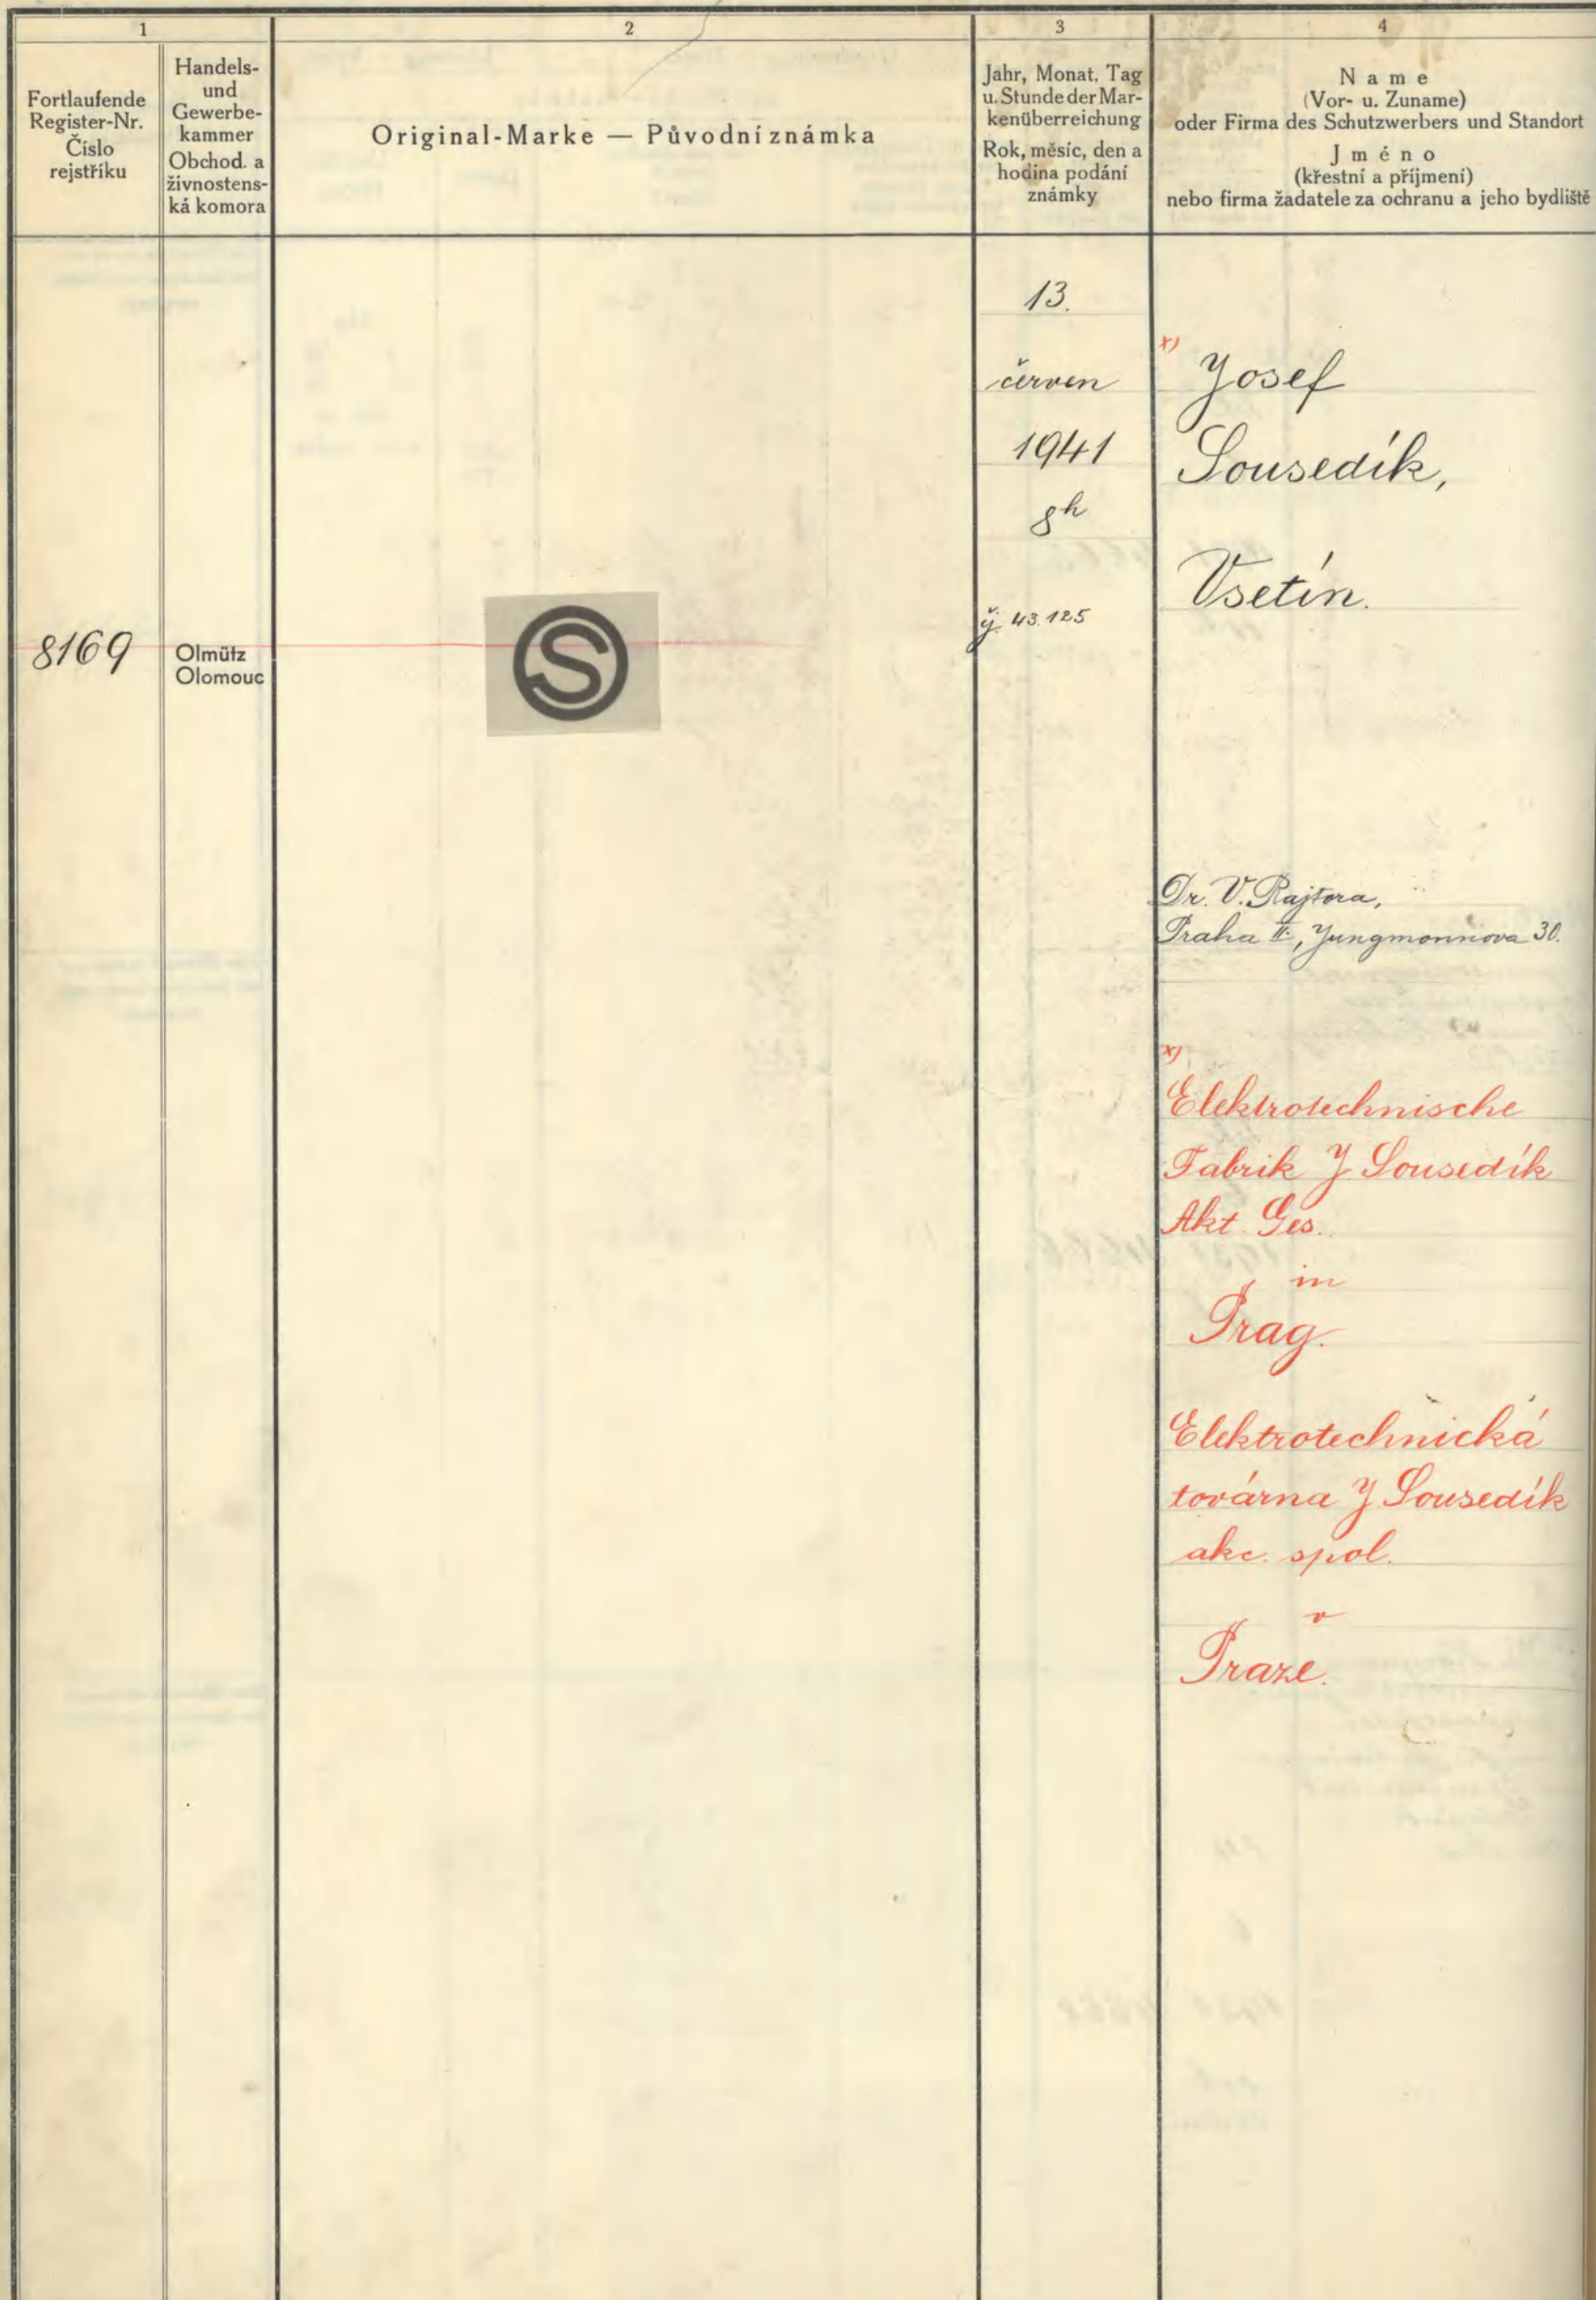 1
2
3
4
Fortlaufende
Register-Nr.
Číslo
rejstříku
Handels-
und
Gewerbe-
kammer
Obchod. a
živnostens-
ká komora
Original-Marke — Původní známka
Jahr, Monat, Tag
u. Stunde der Mar-
kenüberreichung
Rok, měsíc, den a
hodina podání
známky
Name
(Vor- u. Zuname)
oder Firma des Schutzwerbers und Standort
Jméno
(křestní a příjmení)
nebo firma žadatele za ochranu a jeho bydliště
8169
Olmütz
Olomouc
S
13.
červen
1941
8h
čj. 43.125
x)
Josef
Sousedík,
Vsetín.
Dr. V. Rajtora,
Praha II., Jungmannova 30.
x)
Elektrotechnische
Fabrik J Sousedík
Akt. Ges.
in
Prag.
Elektrotechnická
továrna J Sousedík
akc. spol.
v
Praze.